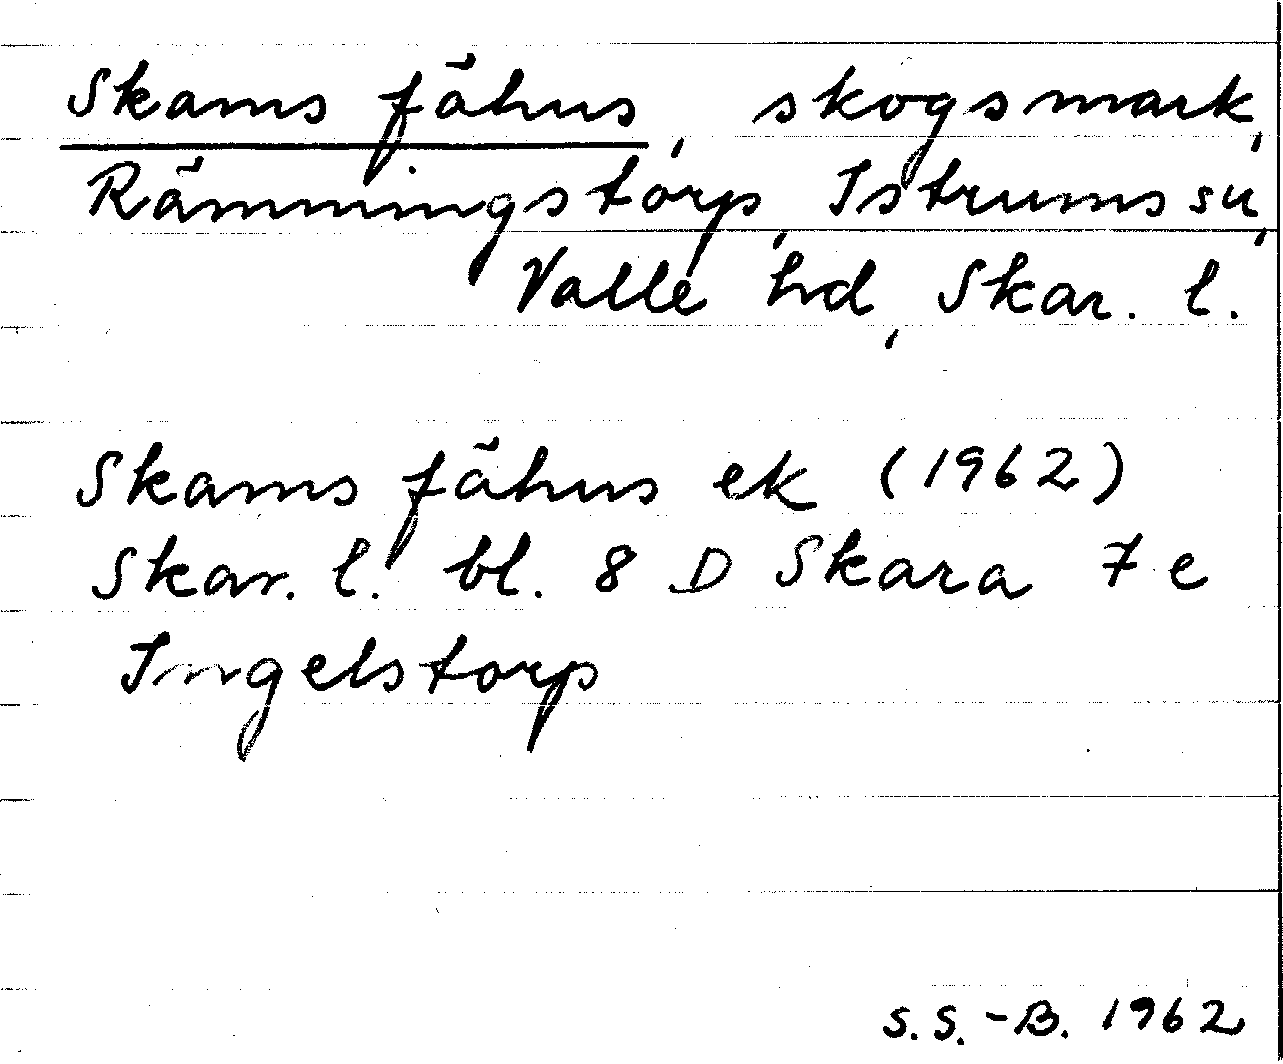 Skams fähus, skogsmark,
Rämmingstorp, Istrums sn,
Valle hd, Skar. l.
Skams fähus ek (1962)
Skar. l. bl. 8 D Skara 7 e
Ingelstorp
S.S.-B. 1962